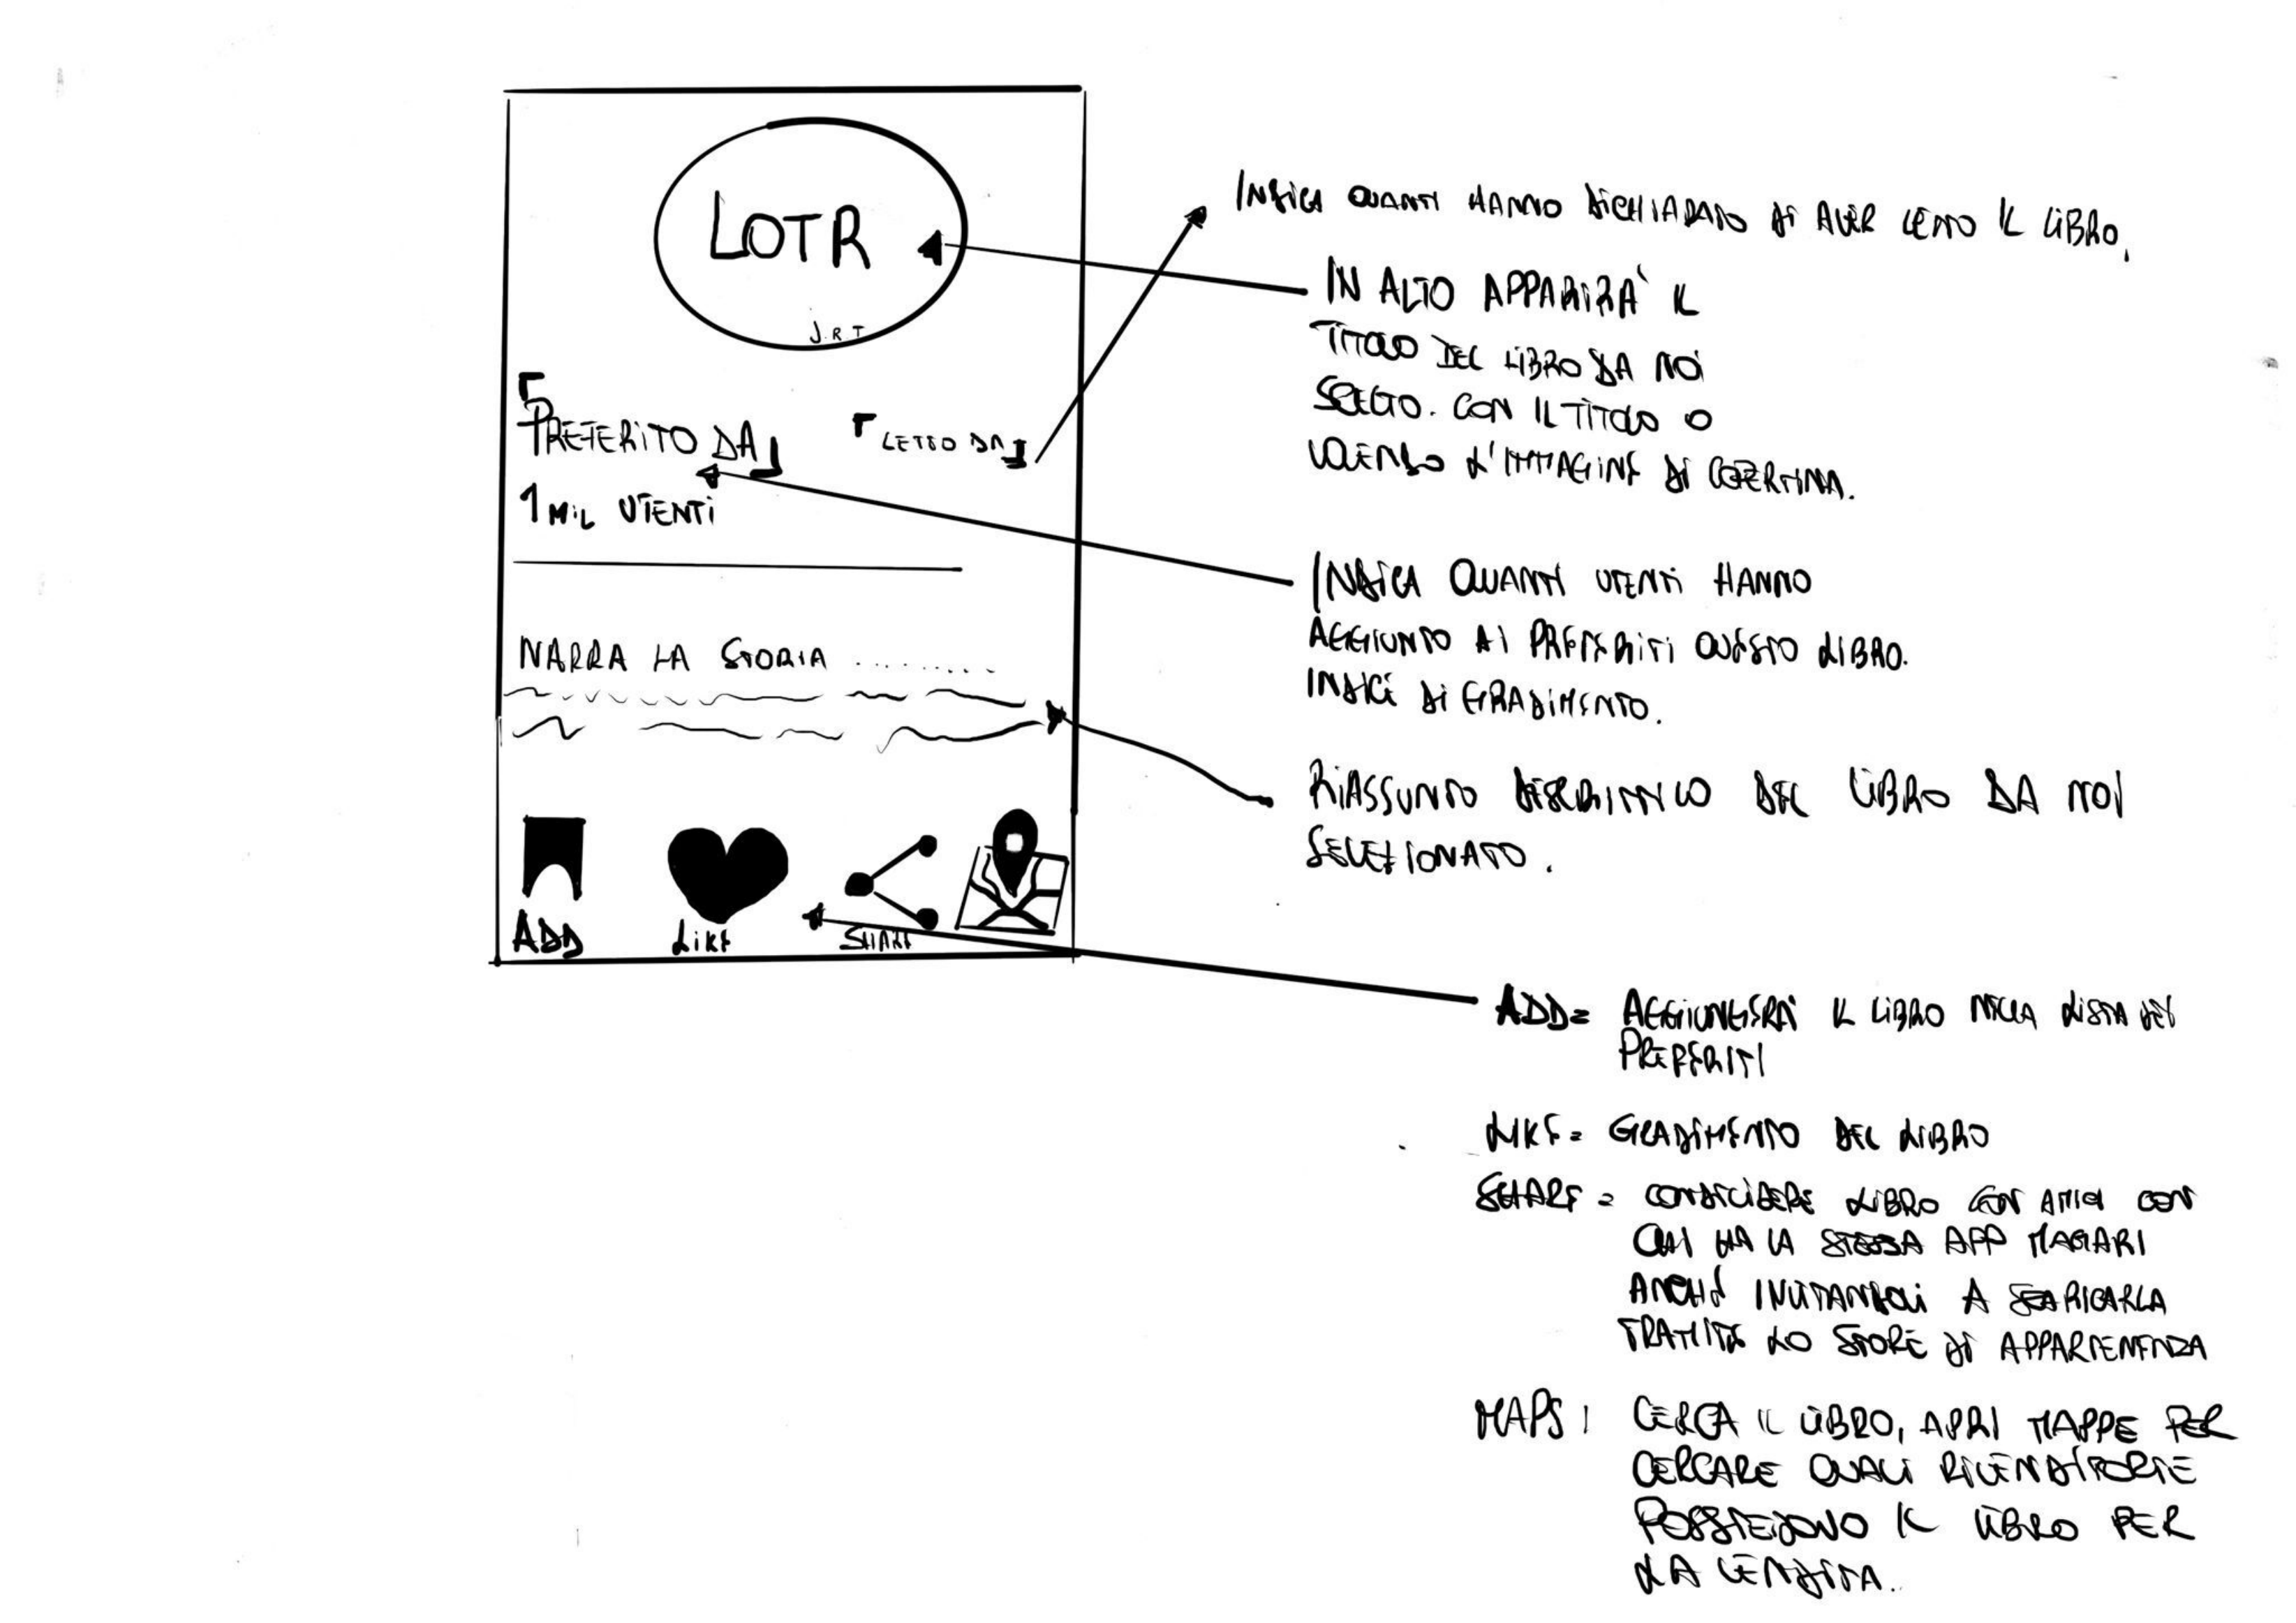 LOTR
J.R.T
PREFERITO DA
LETTO DA
1 MIL UTENTI
NARRA LA STORIA ........
ADD
LIKE
SHARE
INDICA QUANTI HANNO DICHIARATO DI AVER LETTO IL LIBRO.
IN ALTO APPARIRÀ IL
TITOLO DEL LIBRO DA NOI
SCELTO. CON IL TITOLO O
VOLENDO L'IMMAGINE DI COPERTINA.
INDICA QUANTI UTENTI HANNO
AGGIUNTO AI PREFERITI QUESTO LIBRO.
INDICE DI GRADIMENTO.
RIASSUNTO DESCRITTIVO DEL LIBRO DA NOI
SELEZIONATO.
ADD= AGGIUNGERÀ IL LIBRO NELLA LISTA DEI
PREFERITI
LIKE= GRADIMENTO DEL LIBRO
SHARE = CONDICIDERE LIBRO CON AMICI CON
CHI HA LA STESSA APP MAGARI
ANCHE INVITANDOLI A SCARICARLA
TRAMITE LO STORE DI APPARTENENZA
MAPS: CERCA IL LIBRO, APRI MAPPE PER
CERCARE QUALI RIVENDITORIE
POSSIEDONO IL LIBRO PER
LA VENDITA.